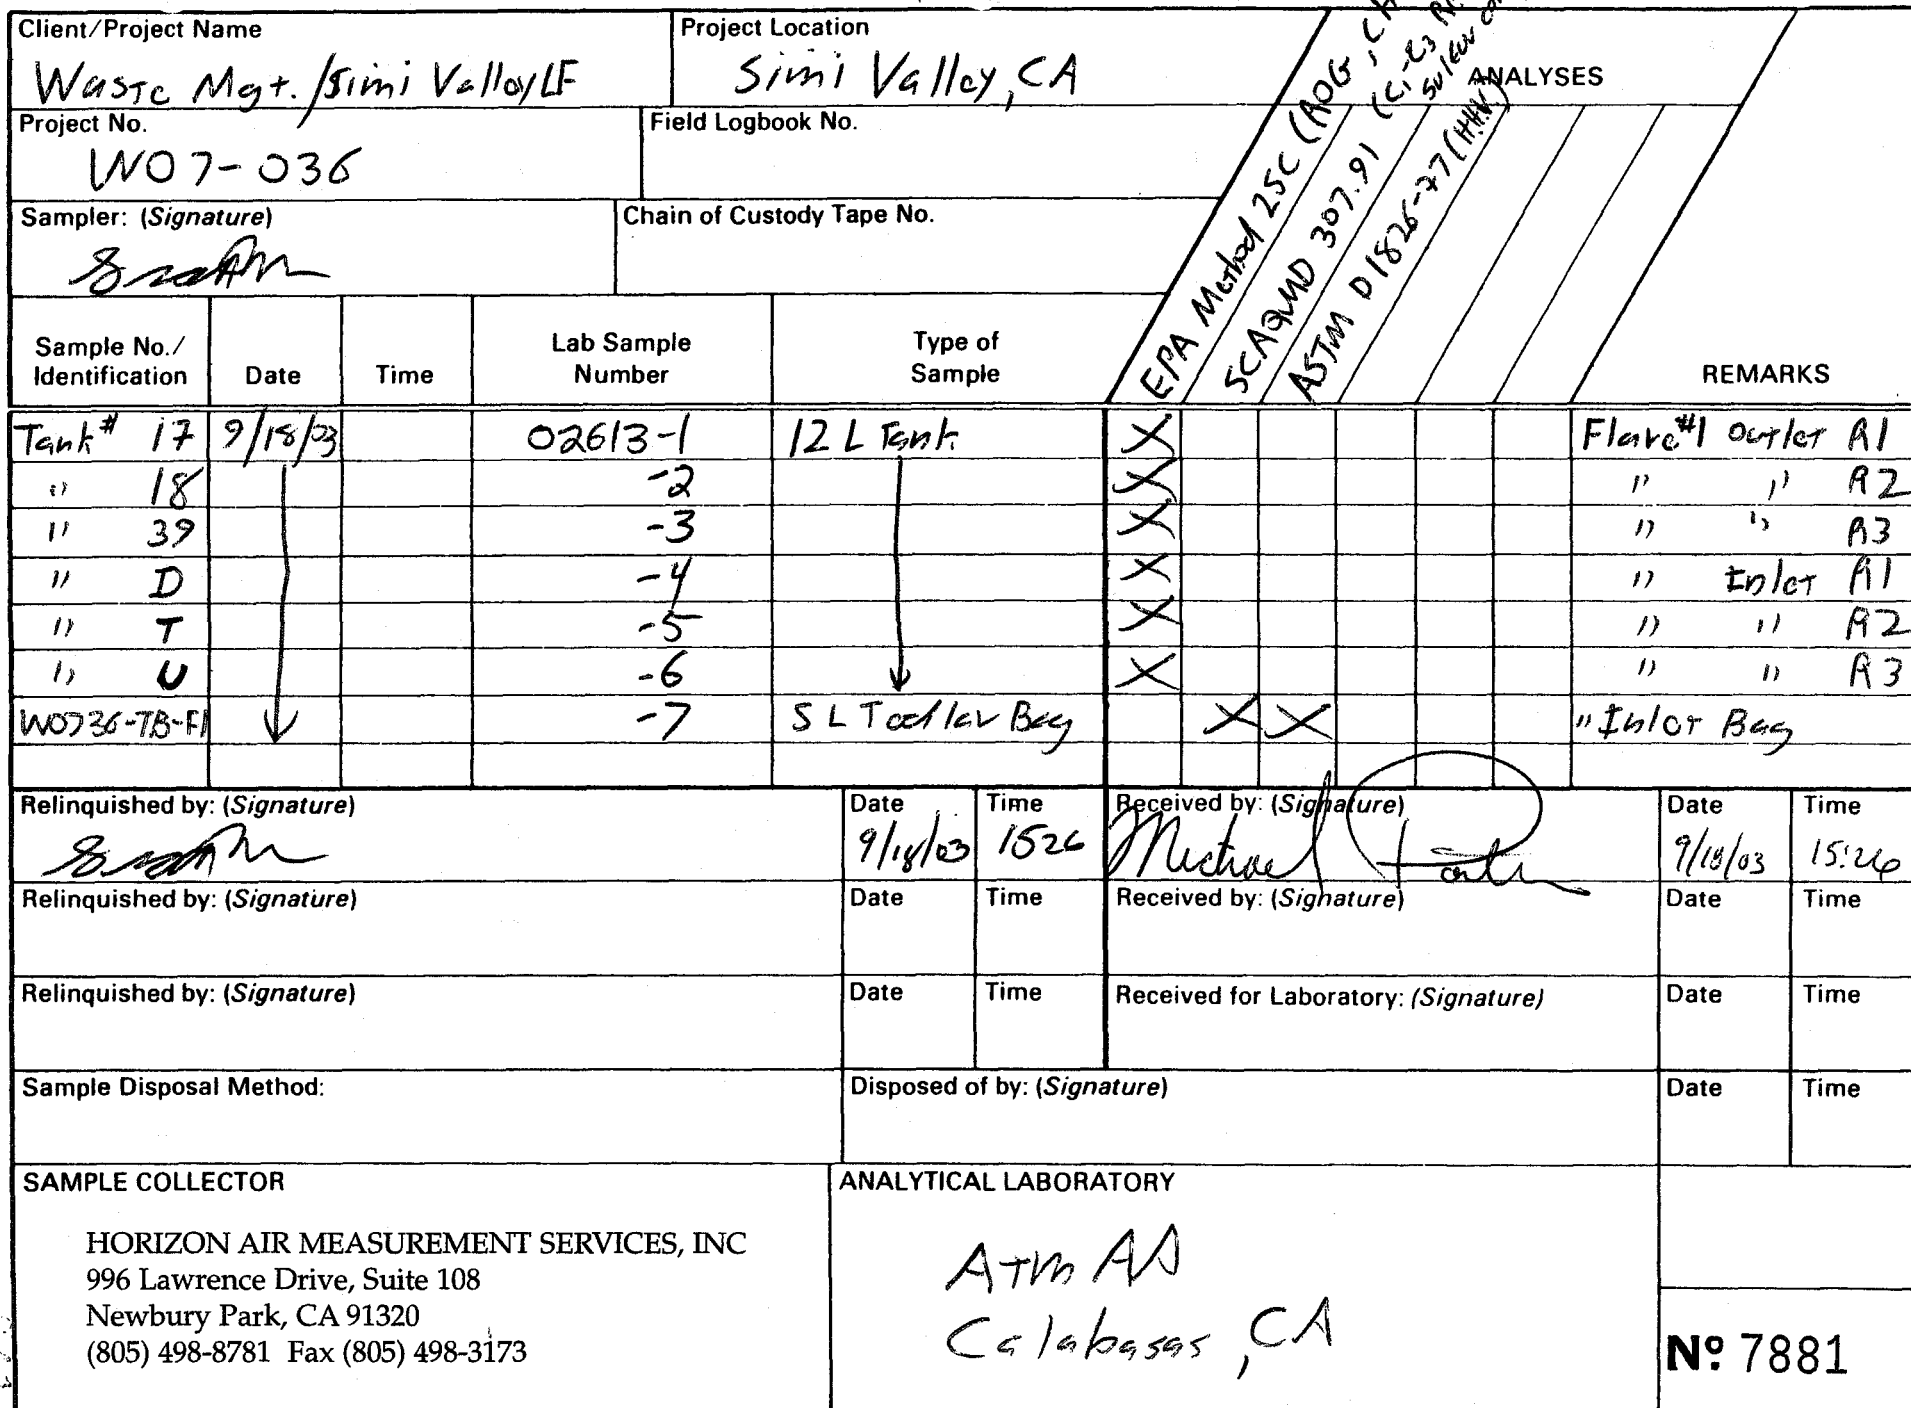 Client/Project Name
Waste Mgt./Simi Valley LF
Project Location
Simi Valley, CA
ANALYSES
Project No.
W07-036
Field Logbook No.
Sampler: (Signature)
Chain of Custody Tape No.
EPA Method 25C (AOG, CH
SCAQMD 307.91 (C1-C3
Sulfur
ASTM D1826-77 (HHV)
Sample No./ Identification
Date
Time
Lab Sample Number
Type of Sample
REMARKS
Tank # 17 9/18/03 02613-1 12 L Tank X Flare #1 Outlet R1
" 18 -2 X " " R2
" 39 -3 X " " R3
" D -4 X " Inlet R1
" T -5 X " " R2
" U -6 X " " R3
W0736-TB-F1 -7 5 L Tedlar Bag X X " Inlet Bag
Relinquished by: (Signature)
Date
9/18/03
Time
1526
Received by: (Signature)
Michael
Date
9/18/03
Time
15:26
Relinquished by: (Signature)
Date
Time
Received by: (Signature)
Date
Time
Relinquished by: (Signature)
Date
Time
Received for Laboratory: (Signature)
Date
Time
Sample Disposal Method:
Disposed of by: (Signature)
Date
Time
SAMPLE COLLECTOR
HORIZON AIR MEASUREMENT SERVICES, INC
996 Lawrence Drive, Suite 108
Newbury Park, CA 91320
(805) 498-8781 Fax (805) 498-3173
ANALYTICAL LABORATORY
AtmAA
Calabasas, CA
Nº 7881